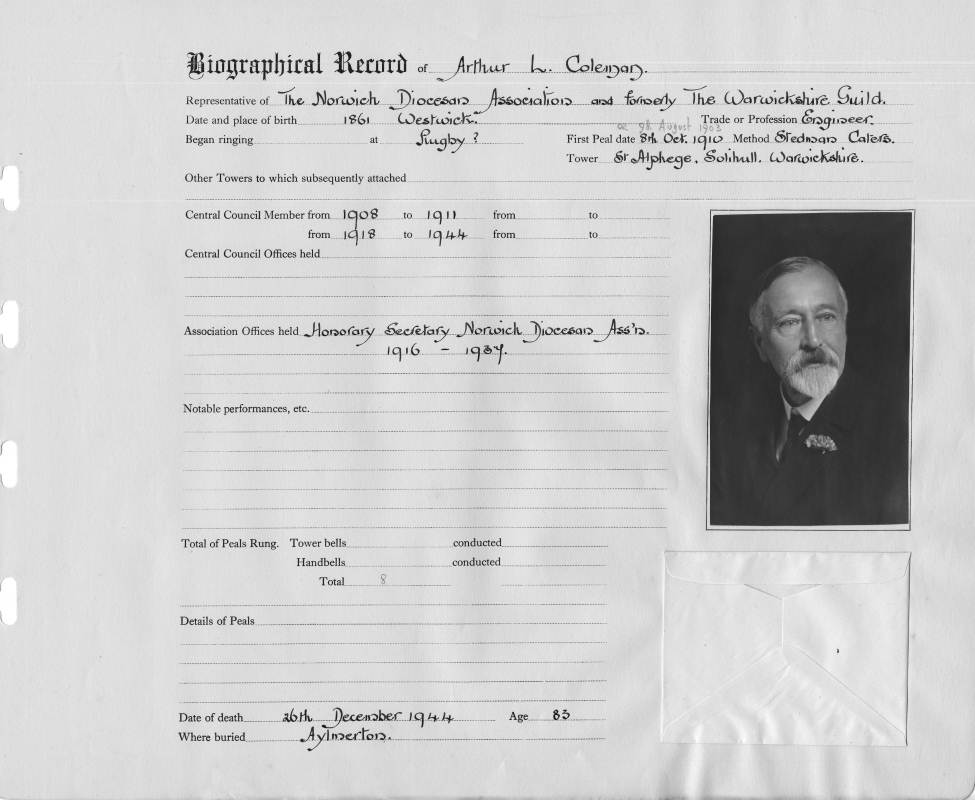 Biographical Record of Arthur L. Coleman.
Representative of The Norwich Diocesan Association and formerly The Warwickshire Guild.
Date and place of birth 1861 Westwick. Trade or Profession Engineer.
or 9th August 1903
Began ringing at Rugby ? First Peal date 8th Oct. 1910 Method Stedman Caters.
Tower St Alphege, Solihull. Warwickshire.
Other Towers to which subsequently attached
Central Council Member from 1908 to 1911 from to
from 1918 to 1944 from to
Central Council Offices held
Association Offices held Honorary Secretary Norwich Diocesan Ass'n.
1916 – 1937.
Notable performances, etc.
Total of Peals Rung. Tower bells conducted
Handbells conducted
Total 8
Details of Peals
Date of death 26th December 1944 Age 83
Where buried Aylmerton.